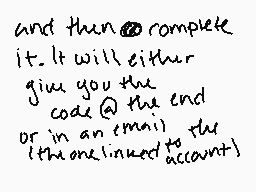 and then complete
it. It will either
give you the
code @ the end
or in an email
(the one linked to the
account)